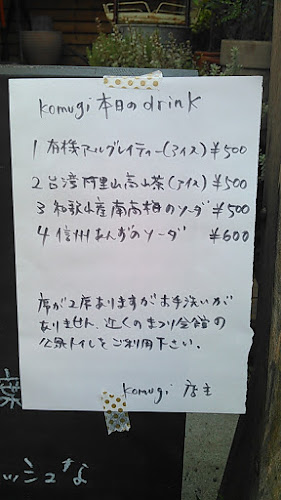 komugi 本日のdrink
1 有機アールグレイティー(アイス) ¥500
2 台湾阿里山高山茶(アイス) ¥500
3 和歌山産南高梅のソーダ ¥500
4 信州あんずのソーダ ¥600
席が2席ありますがお手洗いが
ありません、近くのまつり会館の
公衆トイレをご利用下さい。
komugi 店主
ッシュな